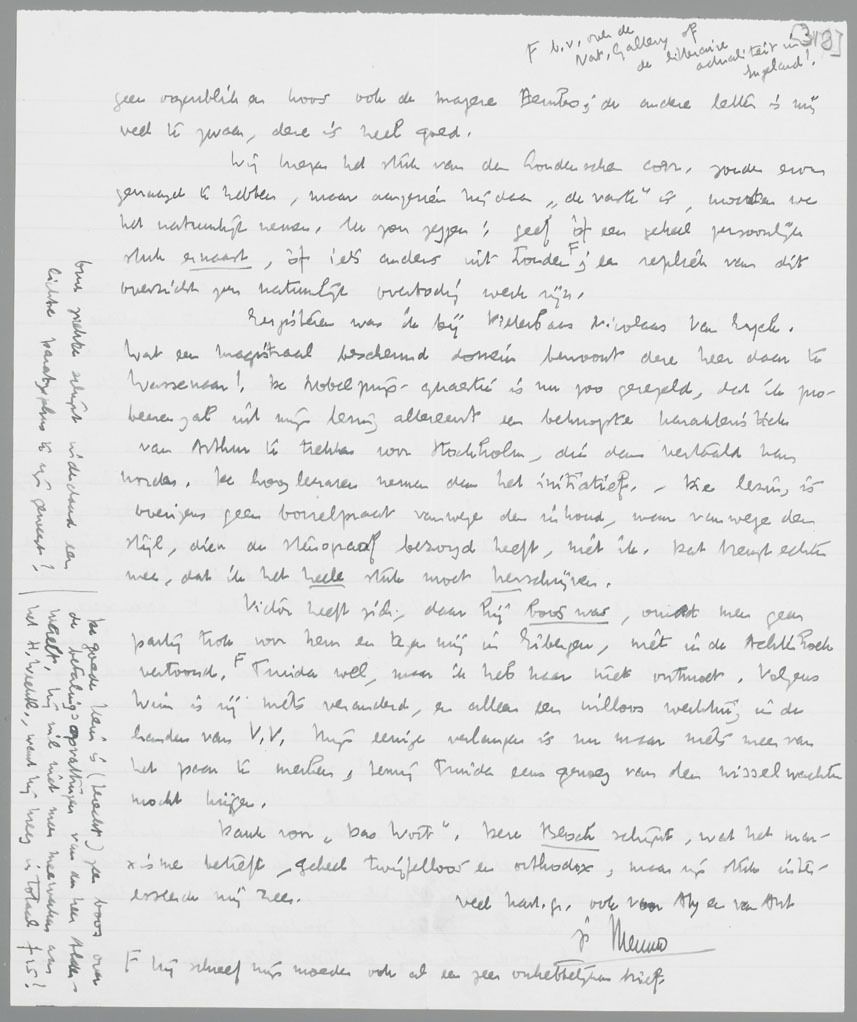 [318]
F b.v. over de
Nat. Gallery of
de litteraire
actualiteit in
Engeland!
geen oogenblik en hoor ook de magere ; de andere letter is mij
veel te zwaar, deze is heel goed.
Wij kregen het stuk van den Londenschen corr. zonder erom
gevraagd te hebben, maar aangezien hij daar „de vaste" is, moeten we
het natuurlijk nemen. Ik zou zeggen: geef òf een geheel persoonlijk
stuk ernaast, òf iets anders uit Londen F; een repliek van dit
overzicht zou natuurlijk overbodig werk zijn.
Eergisteren was ik bij Nicolaas Van Eyck.
Wat een magistraal beschermd domein bewoont deze heer daar te
Wassenaar! De Nobelprijs-quaestie is nu zoo geregeld, dat ik pro-
beeren zal uit mijn lezing allereerst een beknopte karakteristiek
van Arthur te trekken voor Stockholm, die dan vertaald kan
worden. De hoogleeraren nemen dan het initiatief. – Die lezing is
overigens geen borrelpraat vanwege den inhoud, maar vanwege den
stijl, dien de stenograaf bezorgd heeft, niet ik. Dat brengt echter
mee, dat ik het heele stuk moet herschrijven.
Victor heeft zich, daar hij boos was, omdat men geen
partij trok voor hem en tegen mij in Eibergen, niet in de Achterhoek
vertoond. F Truida wel, maar ik heb haar niet ontmoet. Volgens
Wim is zij niets veranderd, en alleen een willoos werktuig in de
handen van V.V. Mijn eenige verlangen is nu maar niets meer van
het paar te merken, tenzij Truida eens genoeg van den wisselwachter
mocht krijgen.
Dank voor „Das Wort". Deze schijnt, wat het mar-
xisme betreft, geheel twijfelloos en orthodox, maar zijn stuk inter-
esseerde mij zeer.
veel hart. gr. ook voor Aly en van Ant
je Menno
F Hij schreef mijn moeder ook al een zeer onhebbelijken brief.
schijnt inderdaad een
lichte te zijn geweest?
De goede Henri is (terecht) zeer boos over
de betalingsopvattingen van den heer
Werelt, hij wil niet meer meewerken aan
het H. Weekbl., want hij kreeg in totaal f 15!